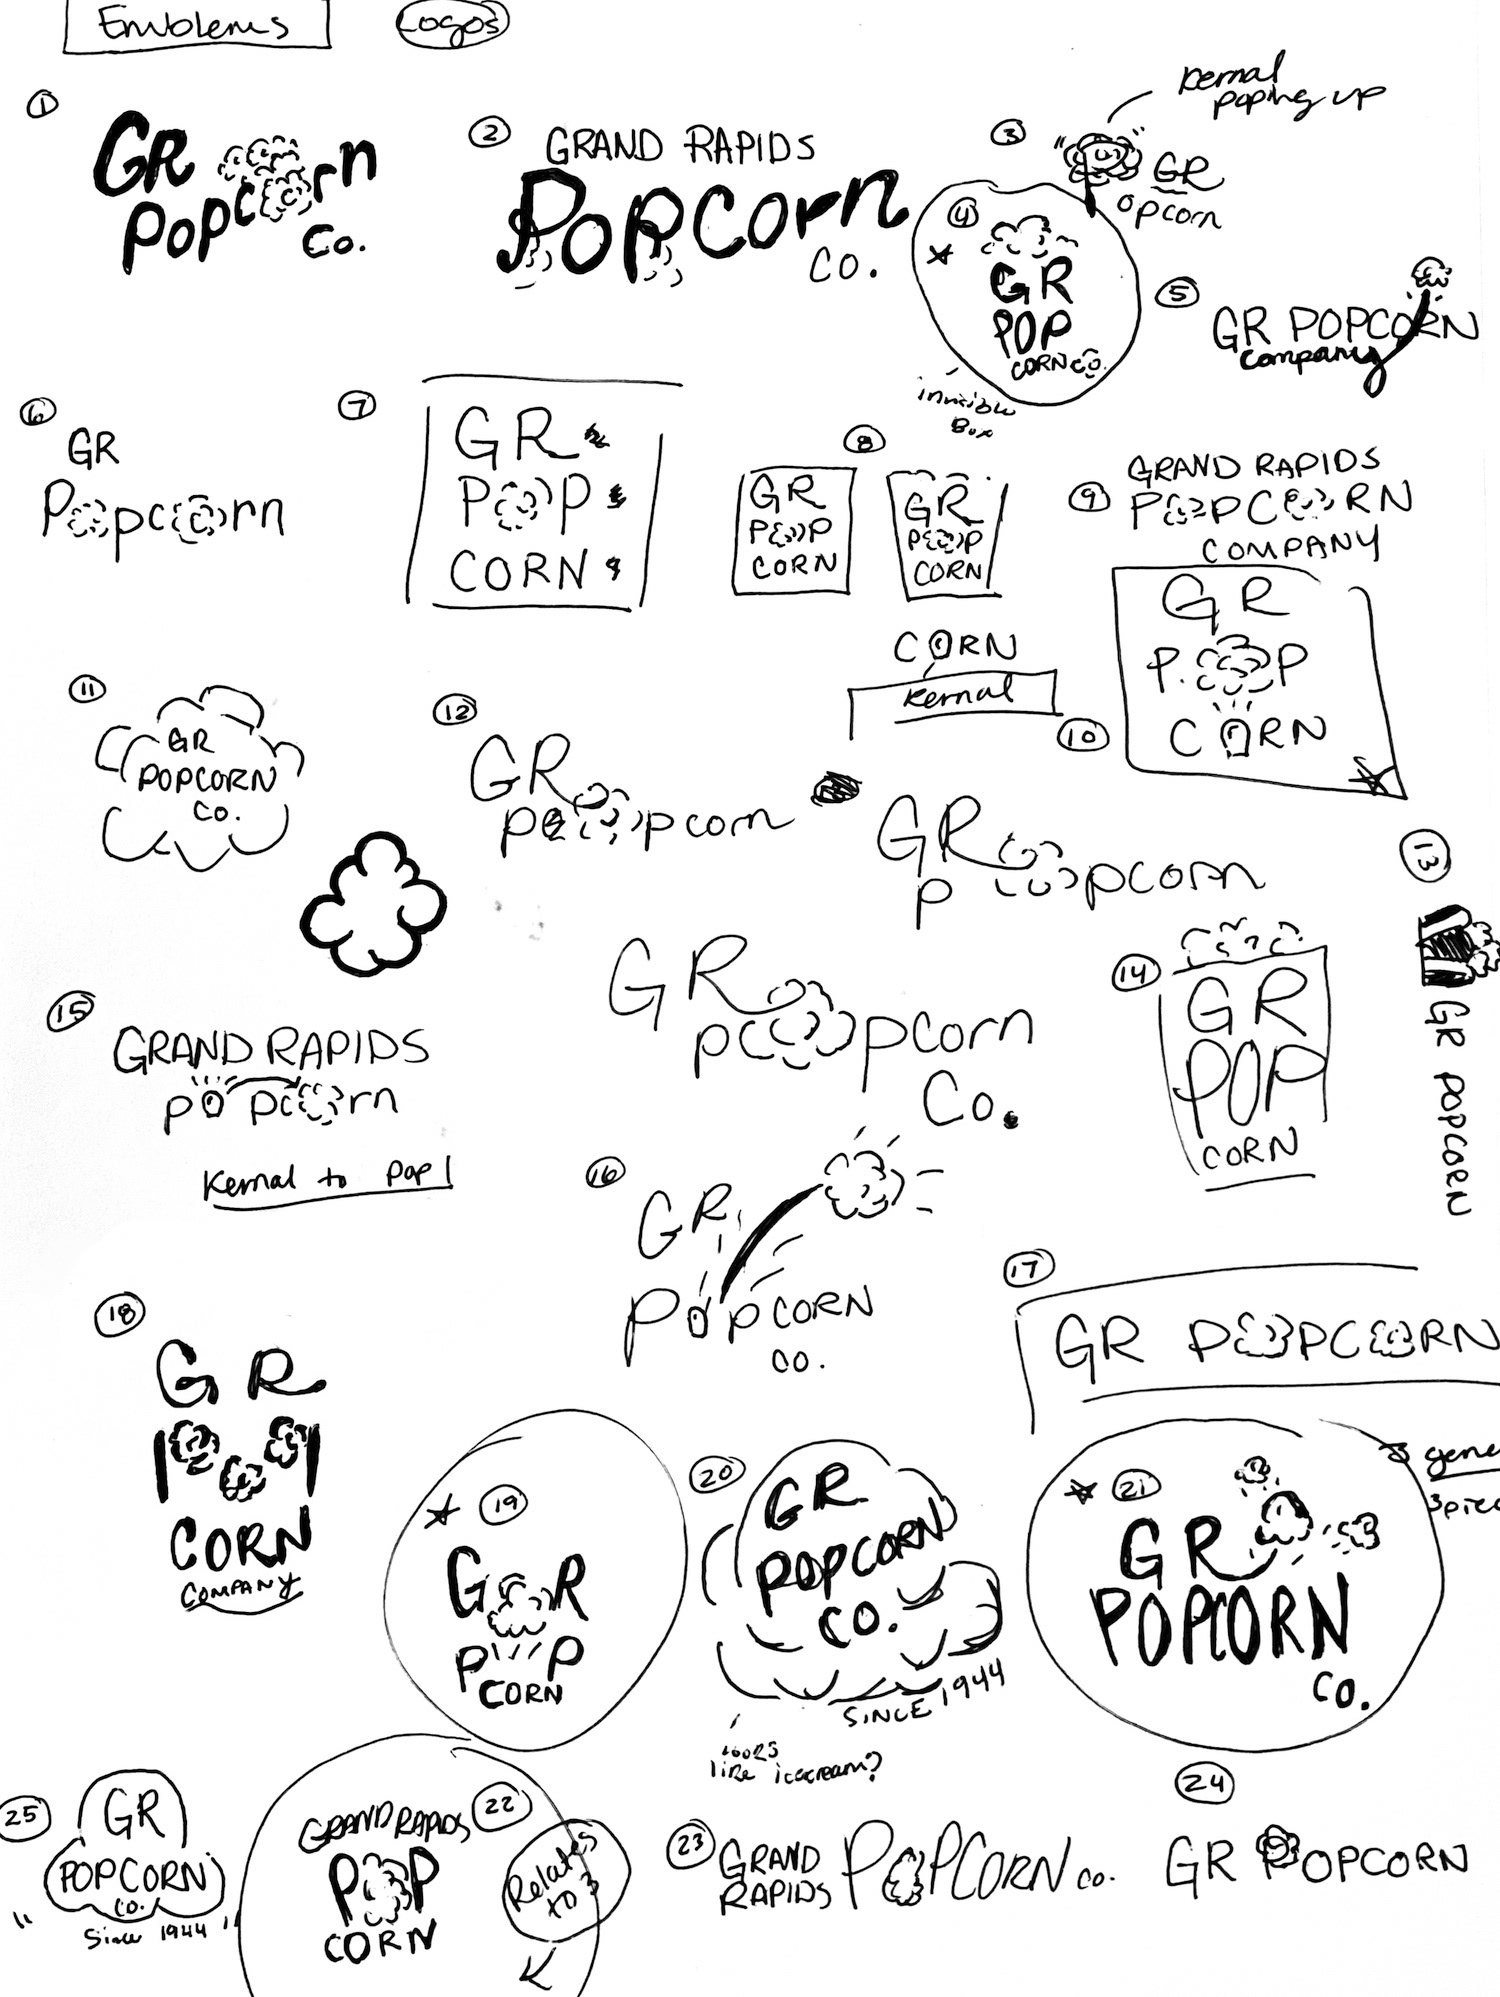 Emblems
Logos
Kernal
poping up
1
GR
Popcorn
Co.
2
GRAND RAPIDS
Popcorn
co.
3
GR
opcorn
4
GR
POP
CORN CO.
invisible
Box
5
GR POPCORN
company
6
GR
Popcorn
7
GR
POP
CORN
8
GR
POP
CORN
GR
POP
CORN
9
GRAND RAPIDS
POPCORN
COMPANY
CORN
Kernal
10
GR
POP
CORN
11
GR
POPCORN
CO.
12
GR
popcorn
GR
popcorn
GR
popcorn
Co.
13
GR POPCORN
14
GR
POP
CORN
15
GRAND RAPIDS
popcorn
Kernal to Pop!
16
GR
POPCORN
CO.
17
GR POPCORN
18
GR
POP
CORN
COMPANY
19
GR
POP
CORN
20
GR
POPCORN
CO.
SINCE 1944
looks
like icecream?
21
GR
POPCORN
CO.
3 gene
3 piec
22
GRAND RAPIDS
POP
CORN
Relates
to 3
23
GRAND
RAPIDS
POPCORN co.
24
GR POPCORN
25
GR
POPCORN
CO.
" Since 1944 "